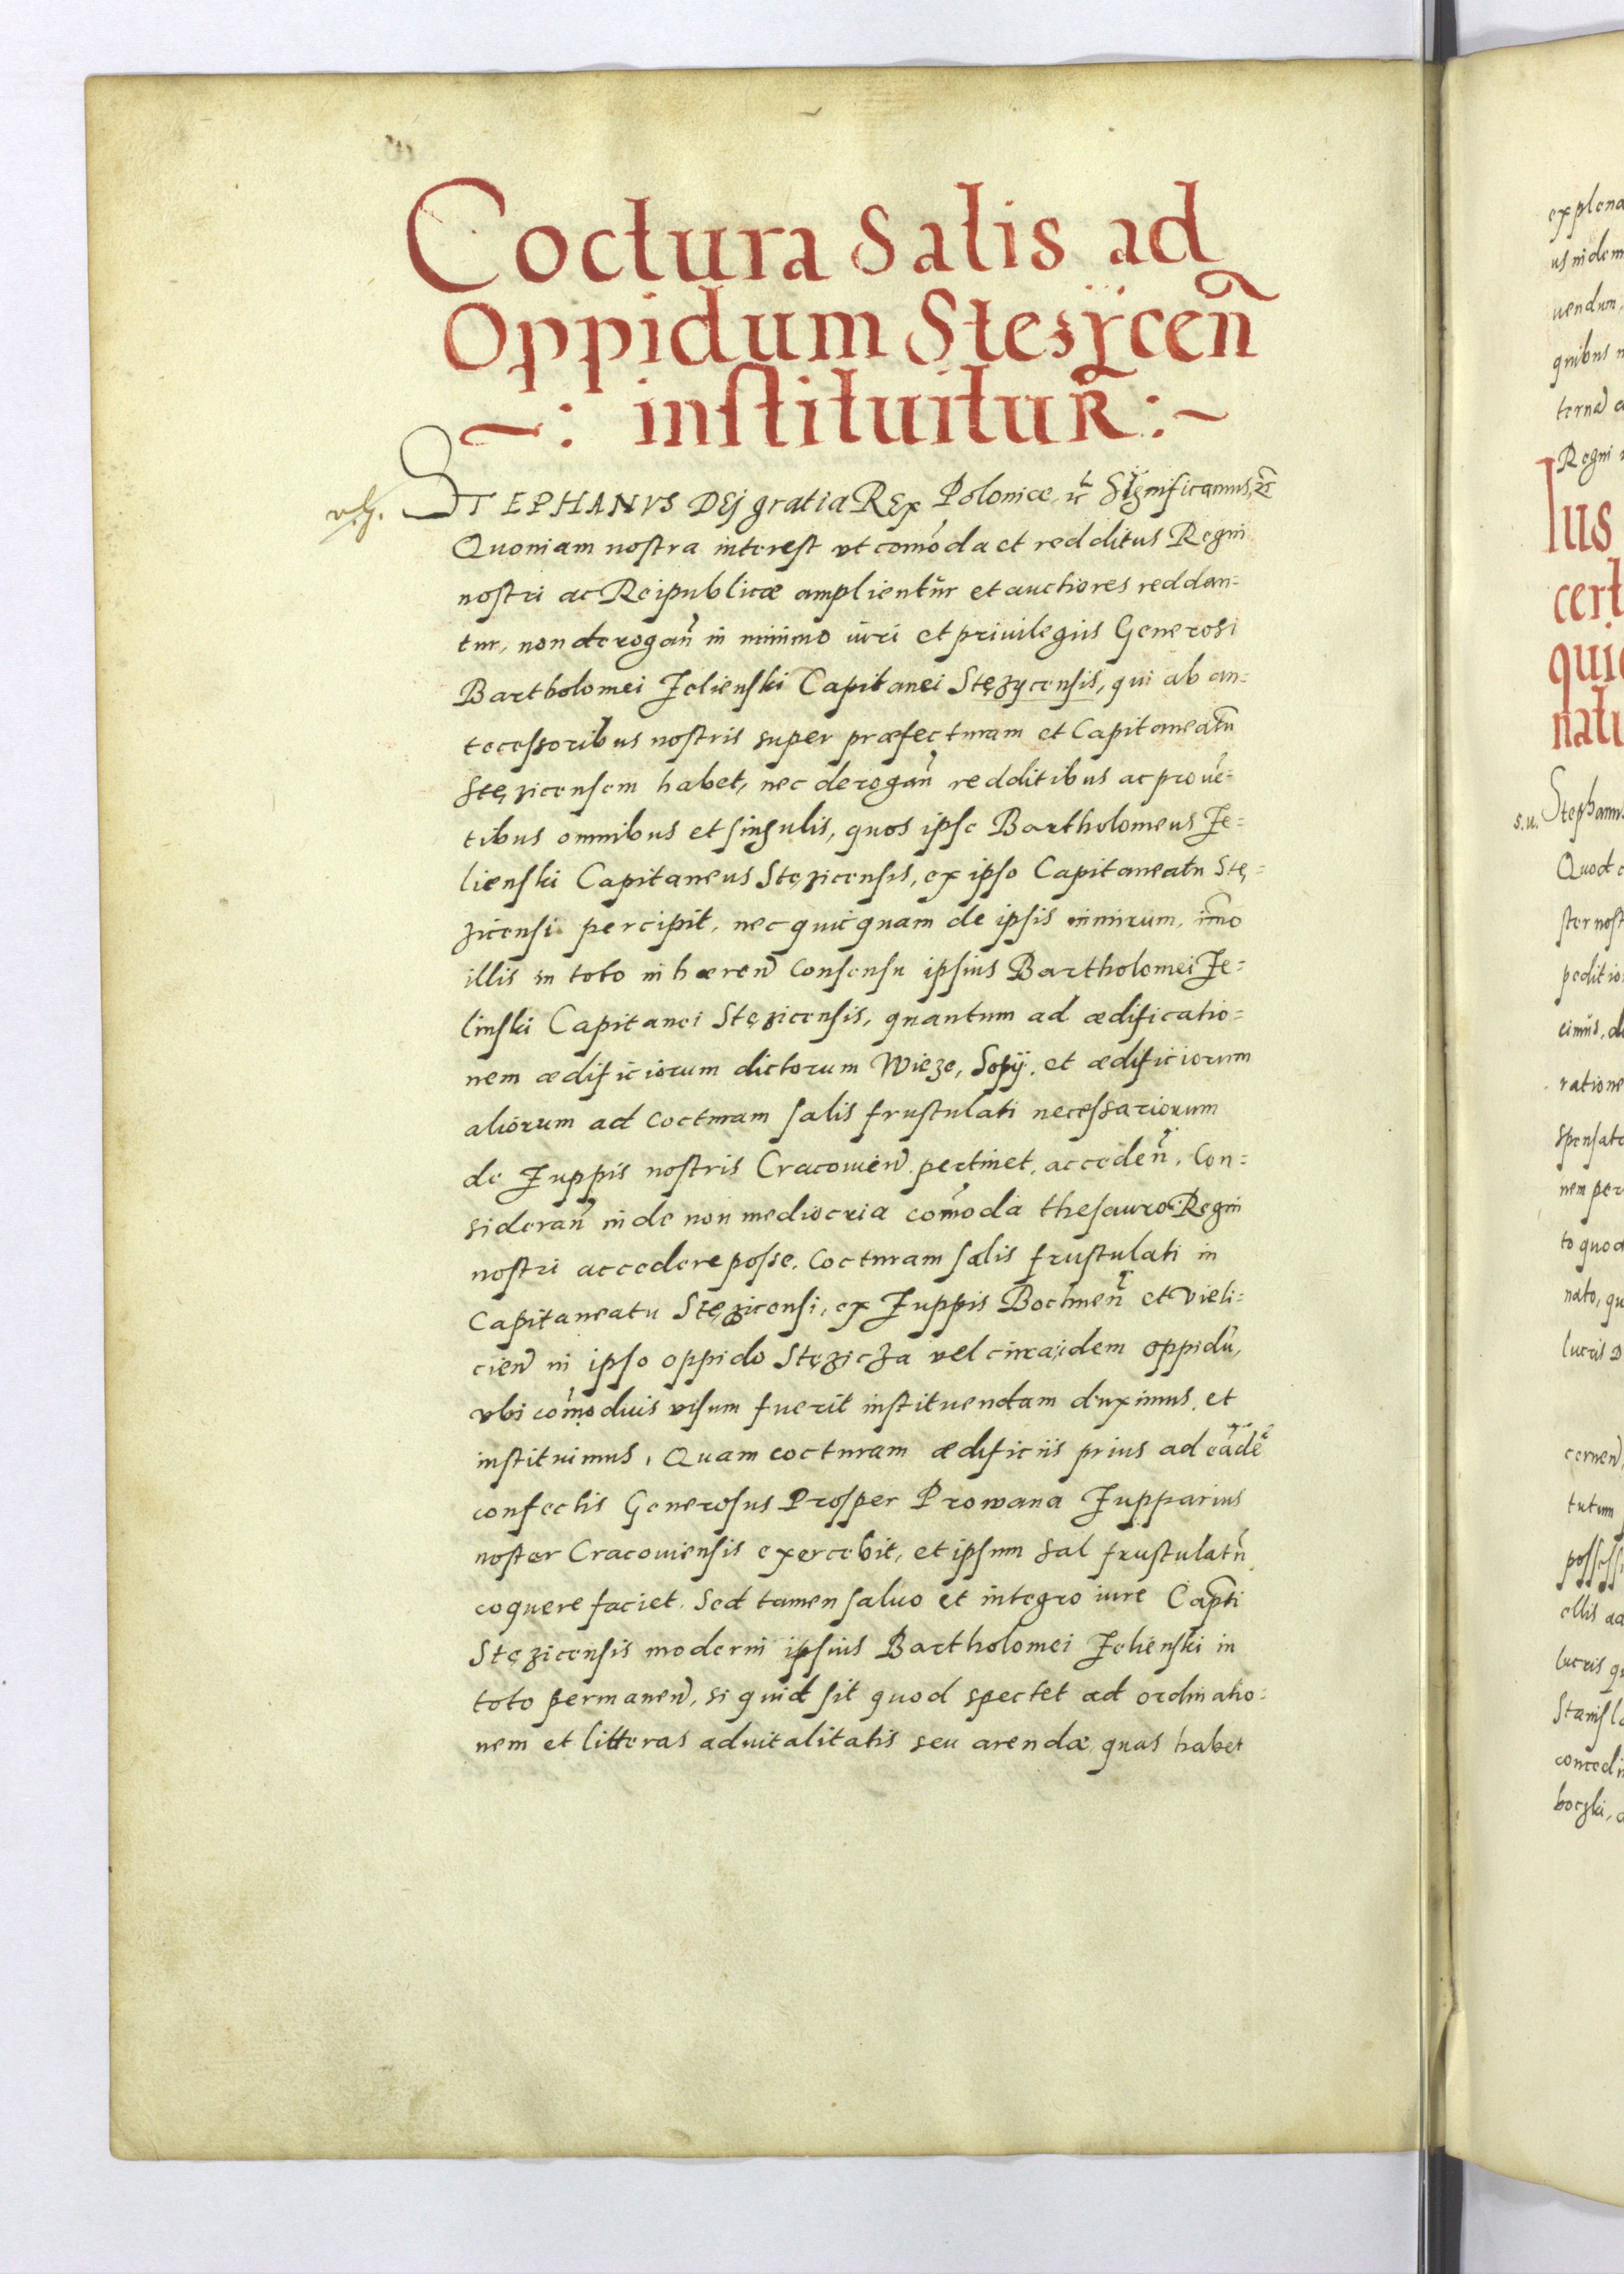 Coctura Salis ad
Oppidum Stesÿcen̄
~: instituitur :~
v.g.
STEPHANVS DEJ gratia REx Poloniæ, ꝛc̄ Significamus, ꝛc̄
Quoniam nostra interest vt com̄oda et redditus Regni
nostri ac Reipublicæ amplientur et auctiores reddan=
tur, non derogan̄ in minimo iuri et priuilegiis Generosi
Bartholomei Zelienski Capitanei Stęzycensis, qui ab an=
tecessoribus nostris super præfecturam et Capitaneatū
Stęzicensem habet, nec derogan̄ redditibus ac prouē=
tibus omnibus et singulis, quos ipse Bartholomeus Ze=
lienski Capitaneus Stęzicensis, ex ipso Capitaneatu Stę=
zicensi percipit, nec quicquam de ipsis inmirum, im̄o
illis in toto inhæren̄ consensu ipsius Bartholomei Ze=
linski Capitanei Stęzicensis, quantum ad ædificatio=
nem ædificiorum dictorum Wieze, Sopÿ, et ædificiorum
aliorum ad cocturam salis frustulati necessariorum
de Zuppis nostris Cracouien̄ pertinet, acceden̄, Con=
sideran̄ inde non mediocria com̄oda thesauro Regni
nostri accedere posse, cocturam salis frustulati in
Capitaneatu Stęzicensi, ex Zuppis Bochnen̄ et Vieli=
cien̄ in ipso oppido Stęzicza vel circa idem oppidū,
vbi com̄oduis visum fuerit instituendam duximus, et
instituimus, Quam cocturam ædificiis prius ad eādē
confectis Generosus Prosper Prowana Zupparius
noster Cracouiensis exercebit, et ipsum sal frustulatū
coquere faciet, Sed tamen saluo et integro iure Capti
Stęzicensis moderni ipsius Bartholomei Zelienski in
toto permanen̄, si quid sit quod spectet ad ordinatio=
nem et litteras aduitalitatis seu arendæ, quas habet
explena
us nidem
uendum,
quibus n
ternā a
Regni
Ius
cert
qui
natu
s.u. Stephanus
Quod
ster nost
peditio
ratione
spensato
nem per
to quod
nato, qu
lucris
cernen̄
tutum
possessi
ellis ad
lucris qu
Stanisla
concedi
boczki,